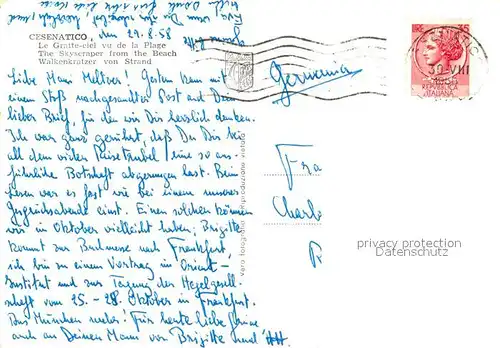 CESENATICO, den 29.8.58
Le Gratte-ciel vu de la Plage
The Skyscraper from the Beach
Walkenkratzer von Strand
Liebe Frau ! Gestern kam mit
einem Stoß nachgesandter Post auch Dein
lieber Brief, für den wir Dir herzlich danken.
Ich war ganz gerührt, daß Du Dir bei
all dem vielen Reisetrubel eine so aus-
führliche Botschaft abgerungen hast. Beim
Lesen war es fast wie bei einem unserer
Gesprächsabende einst. Einen solchen können
wir in Oktober vielleicht haben; Brigitte
kommt zur Buchmesse nach Frankfurt,
ich bin zu einem Vortrag in Orient-
Institut und zur Tagung der Hegelgesell-
schaft vom 25. - 28. Oktober in Frankfurt.
Aus München mehr! Für heute liebe Grüsse
auch an Deinen Mann von Brigitte und
Vera fotografia Riproduzione vietata
Germania
30-VIII
REPUBBLICA
ITALIANA
Fra
Charl
Fr
privacy protection
Datenschutz